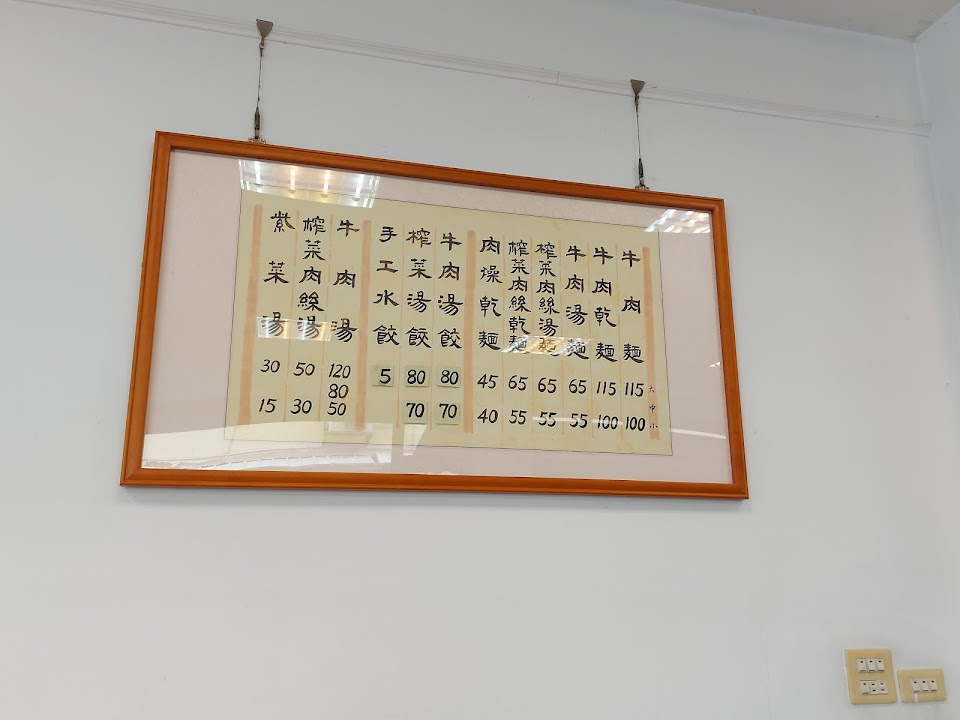 大 中 小
牛肉麵 115 100
牛肉乾麵 115 100
牛肉湯麵 65 55
榨菜肉絲湯麵 65 55
榨菜肉絲乾麵 65 55
肉燥乾麵 45 40
牛肉湯餃 80 70
榨菜湯餃 80 70
手工水餃 5
牛肉湯 120 80 50
榨菜肉絲湯 50 30
紫菜湯 30 15